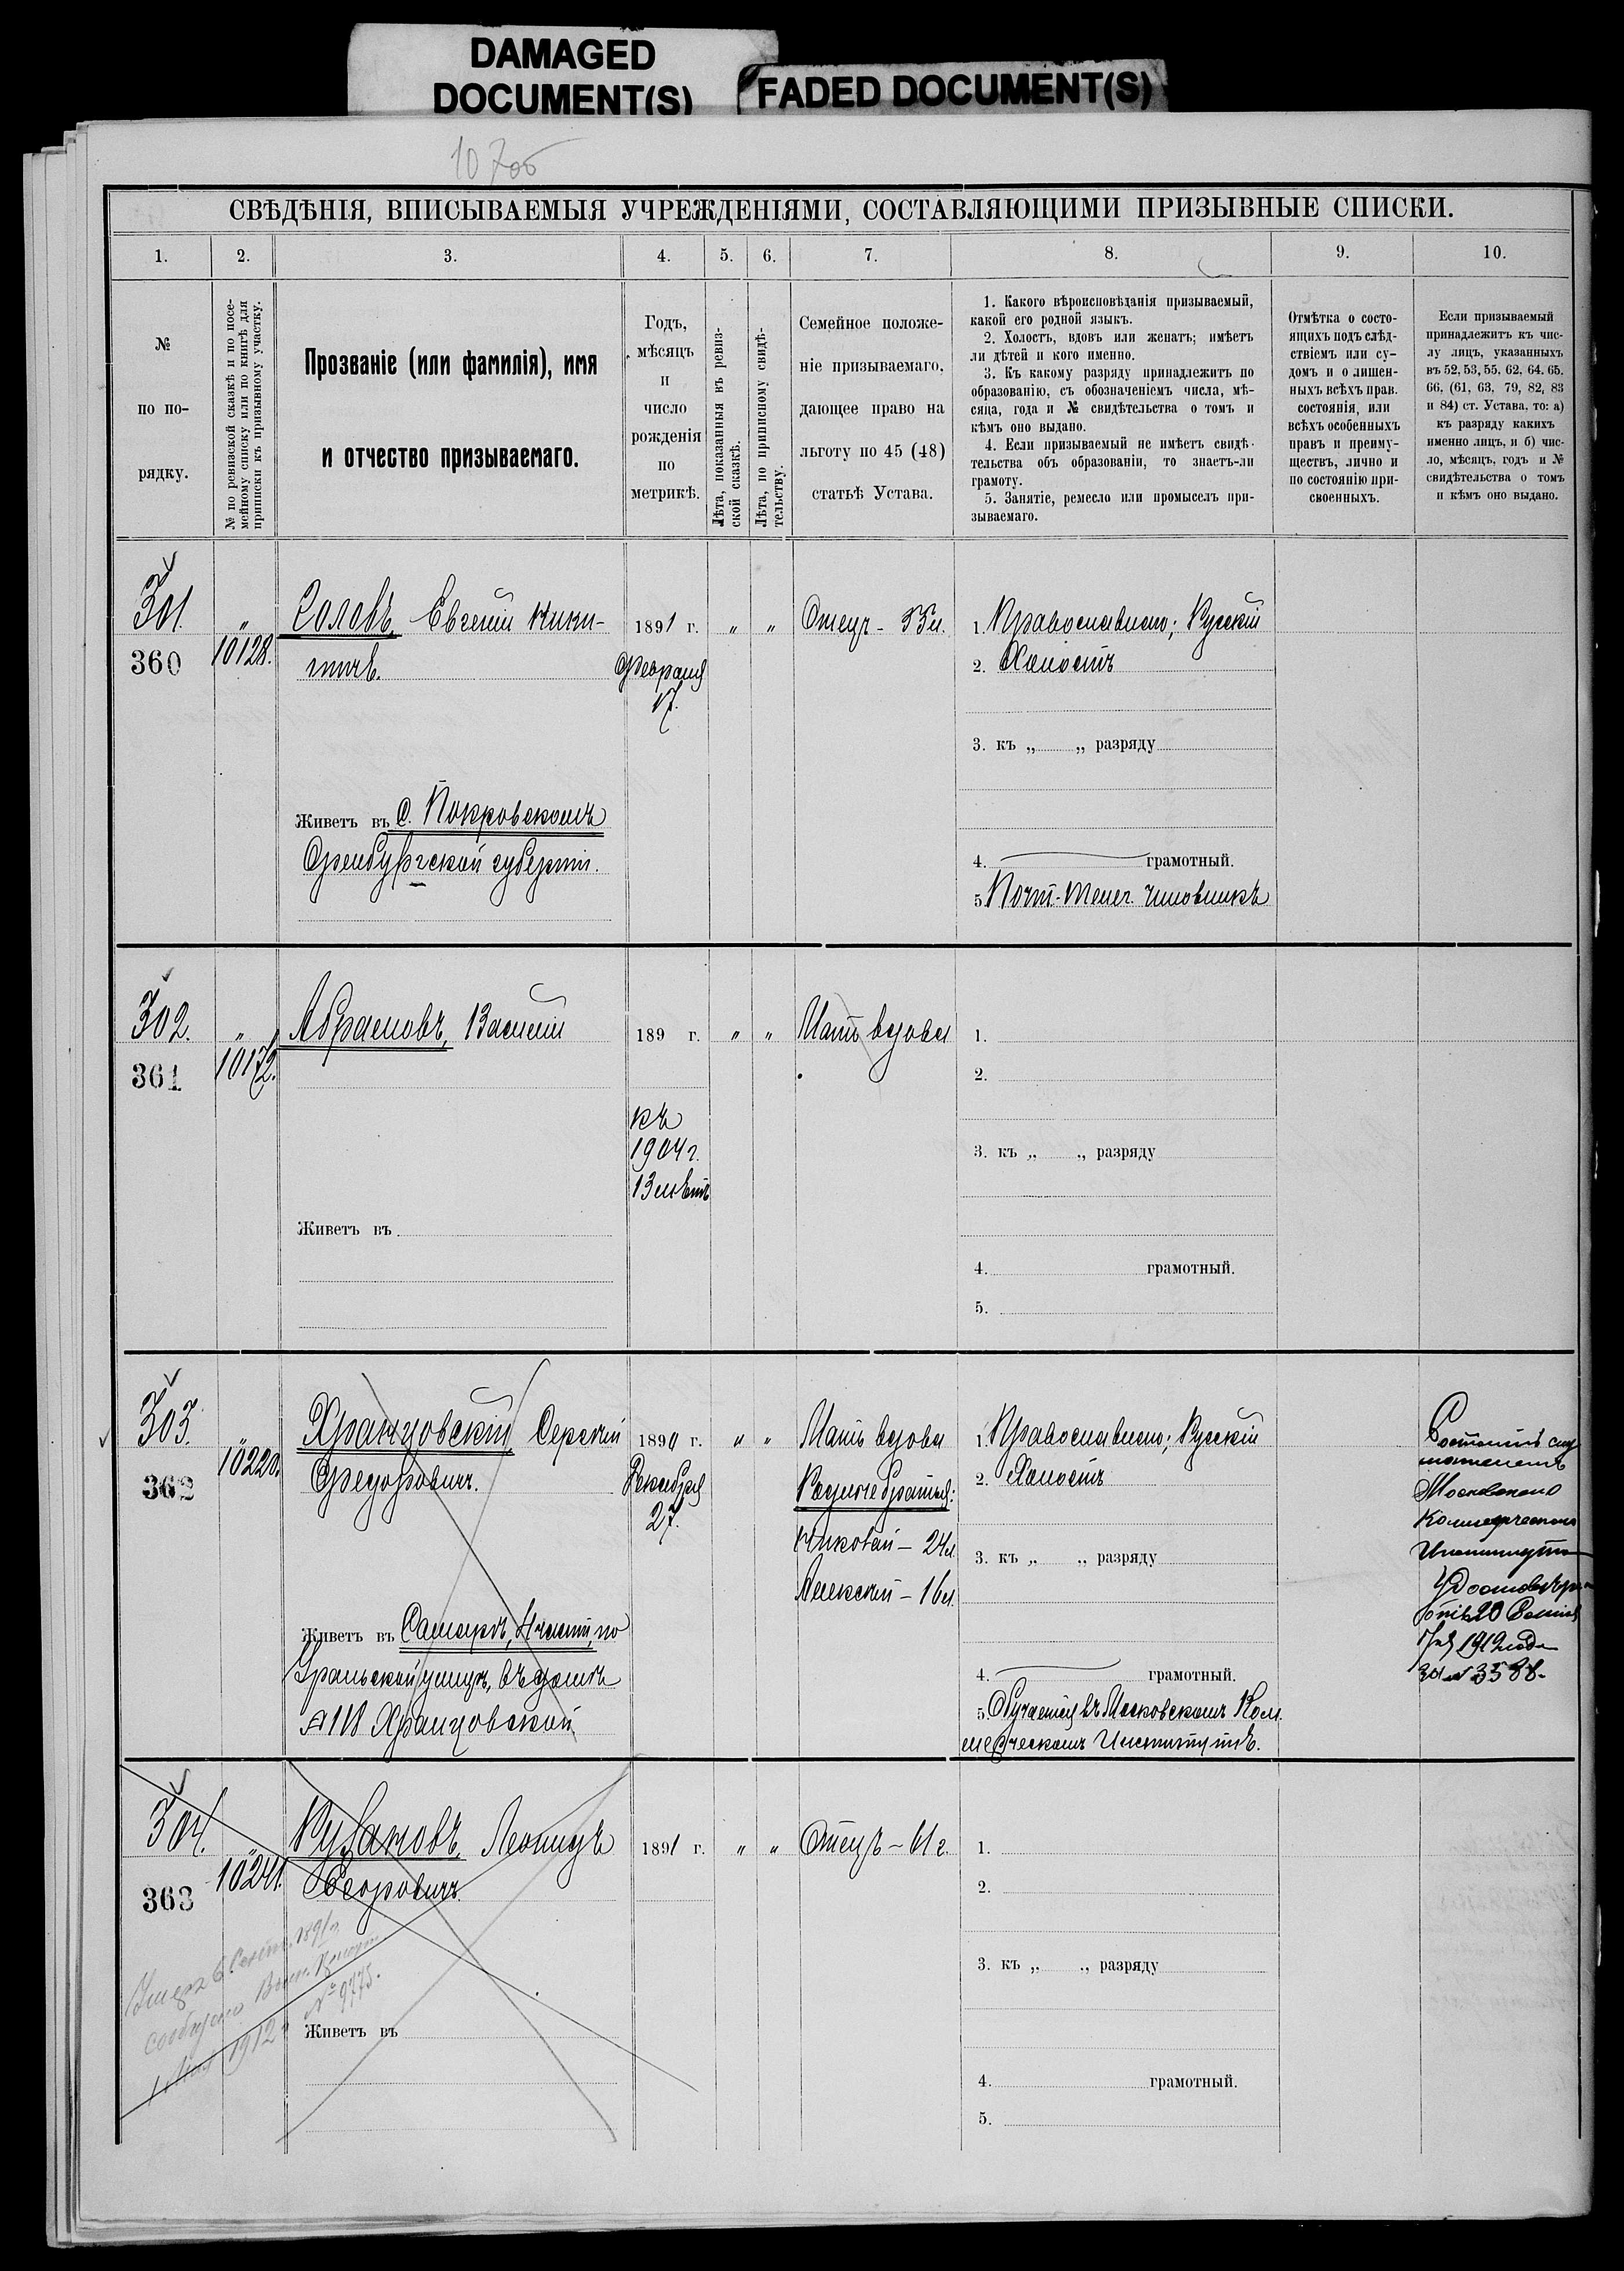 DAMAGED
DOCUMENT(S)
FADED DOCUMENT(S)
107об
СВѢДѢНІЯ, ВПИСЫВАЕМЫЯ УЧРЕЖДЕНІЯМИ, СОСТАВЛЯЮЩИМИ ПРИЗЫВНЫЕ СПИСКИ.
1.
2.
3.
4.
5.
6.
7.
8.
9.
10.
№
по по-
рядку.
№ по ревизской сказкѣ и по посе-
мейному списку или по книгѣ для
приписки къ призывному участку.
Прозваніе (или фамилія), имя
и отчество призываемаго.
Годъ,
мѣсяцъ
и
число
рожденія
по
метрикѣ.
Лѣта, показанныя въ ревиз-
ской сказкѣ.
Лѣта, по приписному свидѣ-
тельству.
Семейное положе-
ніе призываемаго,
дающее право на
льготу по 45 (48)
статьѣ Устава.
1. Какого вѣроисповѣданія призываемый,
какой его родной языкъ.
2. Холостъ, вдовъ или женатъ; имѣетъ
ли дѣтей и кого именно.
3. Къ какому разряду принадлежитъ по
образованію, съ обозначеніемъ числа, мѣ-
сяца, года и № свидѣтельства о томъ и
кѣмъ оно выдано.
4. Если призываемый не имѣетъ свидѣ-
тельства объ образованіи, то знаетъ-ли
грамоту.
5. Занятіе, ремесло или промыселъ при-
зываемаго.
Отмѣтка о состо-
ящихъ подъ слѣд-
ствіемъ или су-
домъ и о лишен-
ныхъ всѣхъ прав.
состоянія, или
всѣхъ особенныхъ
правъ и преиму-
ществъ, лично и
по состоянію при-
своенныхъ.
Если призываемый
принадлежитъ къ чис-
лу лицъ, указанныхъ
въ 52, 53, 55, 62, 64, 65,
66, (61, 63, 79, 82, 83
и 84) ст. Устава, то: а)
къ разряду какихъ
именно лицъ, и б) чис-
ло, мѣсяцъ, годъ и №
свидѣтельства о томъ
и кѣмъ оно выдано.
301.
360
„
10128.
Головъ, Евгеній Ники-
тичъ.
Живетъ въ с. Покровскомъ
Оренбургской губерніи.
1891 г.
Февраля
17.
„ „
Отецъ - 55 л.
1. Православнаго; Русскій
2. Холостъ
3. къ „ „ разряду
4. грамотный.
5. Почт.-телег. чиновникъ
302.
361
„
10172.
Абрамовъ, Василій
Живетъ въ
189 г.
къ
1904 г.
13 лѣтъ
„ „
Мать вдова
1.
2.
3. къ „ „ разряду
4. грамотный.
5.
303.
362
„
10220.
Хранцовскій, Сергѣй
Федоровичъ.
Живетъ въ Самарѣ, 4 части, по
Уральской улицѣ, въ домѣ
№ 118 Хранцовской
1890 г.
Декабря
27.
„ „
Мать вдова
Родные братья:
Николай - 24 л.
Алексѣй - 16 л.
1. Православнаго; Русскій
2. Холостъ
3. къ „ „ разряду
4. грамотный.
5. Обучается въ Московскомъ Ком-
мерческомъ Институтѣ.
Состоитъ слу
шателемъ
Московскаго
Коммерческаго
Института
отъ 20
1912 года
за № 3588.
304.
363
„
10241.
Рузановъ, Леонидъ
Егоровичъ.
Живетъ въ
1891 г.
„ „
Отецъ - 61 г.
1.
2.
3. къ „ „ разряду
4. грамотный.
5.
Умеръ 6 Сент. 1891 г.
сообщено
1912 г. № 9775.